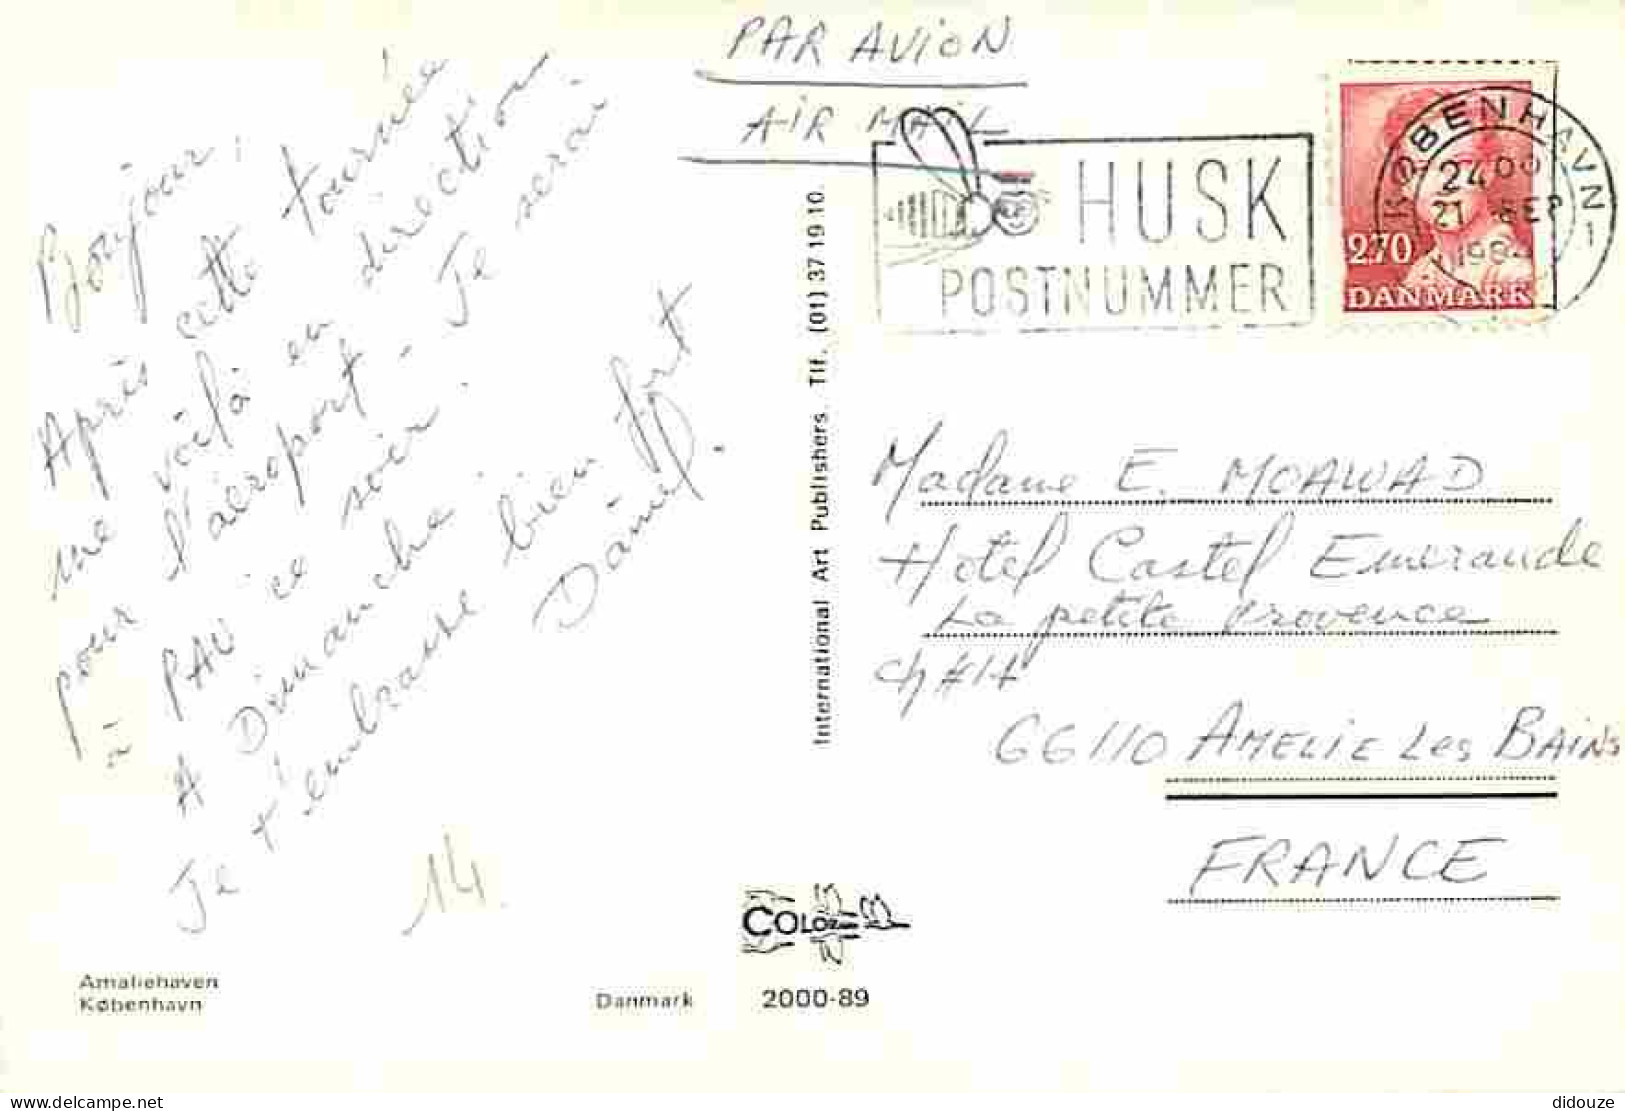 PAR AVION
AIR MAIL
HUSK
POSTNUMMER
KØBENHAVN
2400
21 SEP
1984
2.70
DANMARK
Bonjour,
Après cette tournée
me voilà en direction
pour l'aéroport. Je serai
à PAU ce soir.
A Dimanche.
Je t'embrasse bien fort
14
International Art Publishers. Tlf. (01) 37 19 10.
Madame E. MOAWAD
Hotel Castel Emeraude
La petite Provence
Ch #14
66110 AMELIE Les BAINS
FRANCE
Amaliehaven
København
Danmark
2000-89
delcampe.net
didouze